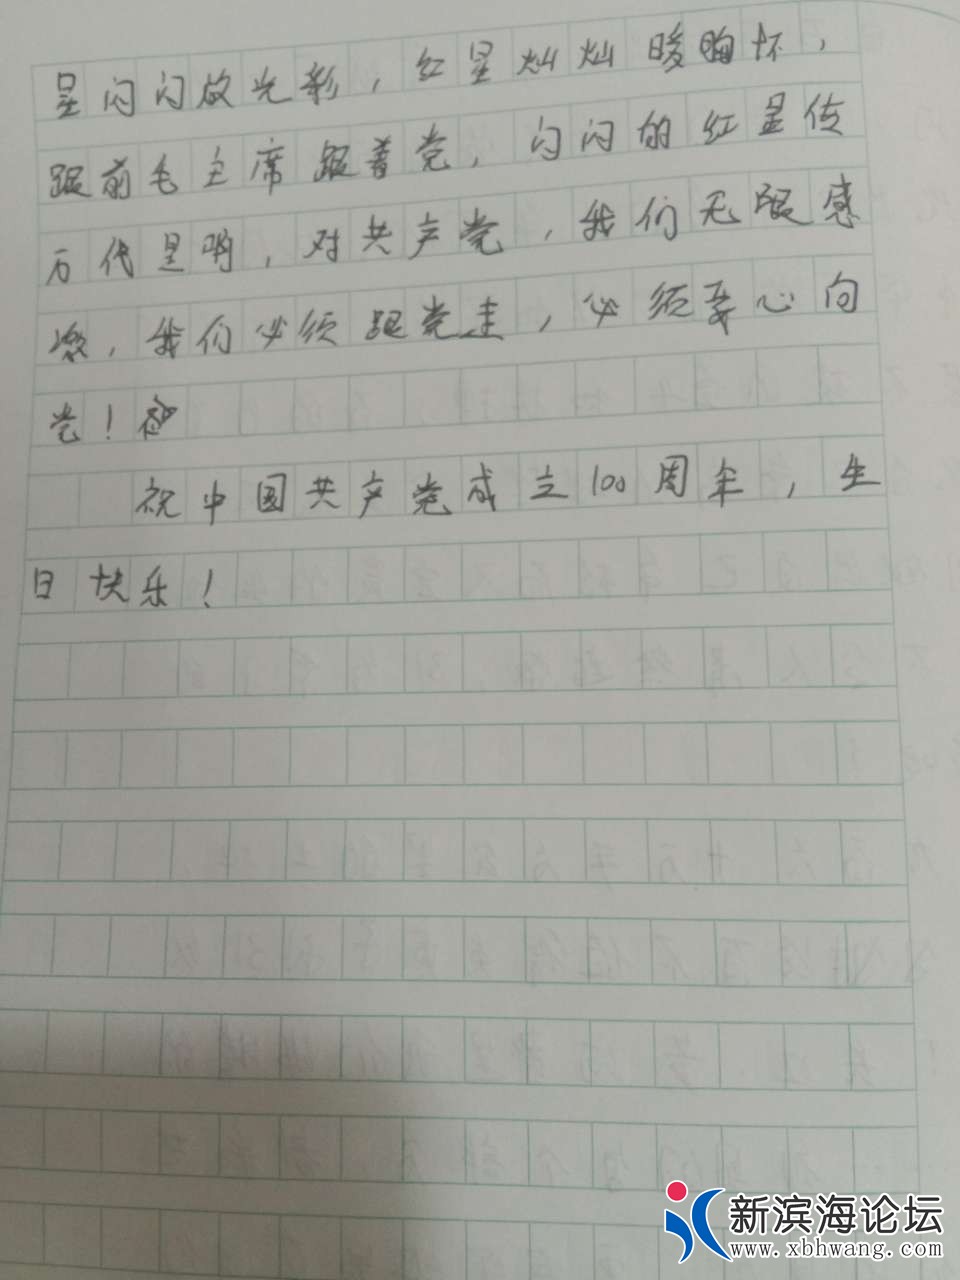 星闪闪放光彩,红星灿灿暖胸怀,
跟前毛主席跟着党,闪闪的红星传
万代是啊,对共产党,我们无限感
激,我们必须跟党走,必须委心向
党!祝
祝中国共产党成立100周年,生
日快乐!
新滨海论坛
www.xbhwang.com